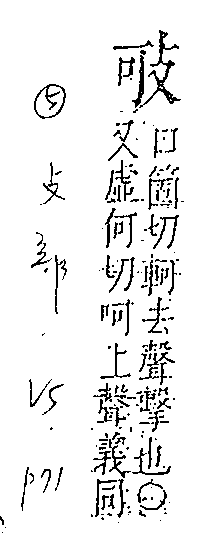 口箇切軻去聲擊也〇
又虛何切呵上聲義同
⑤ 攴部. V5. p71